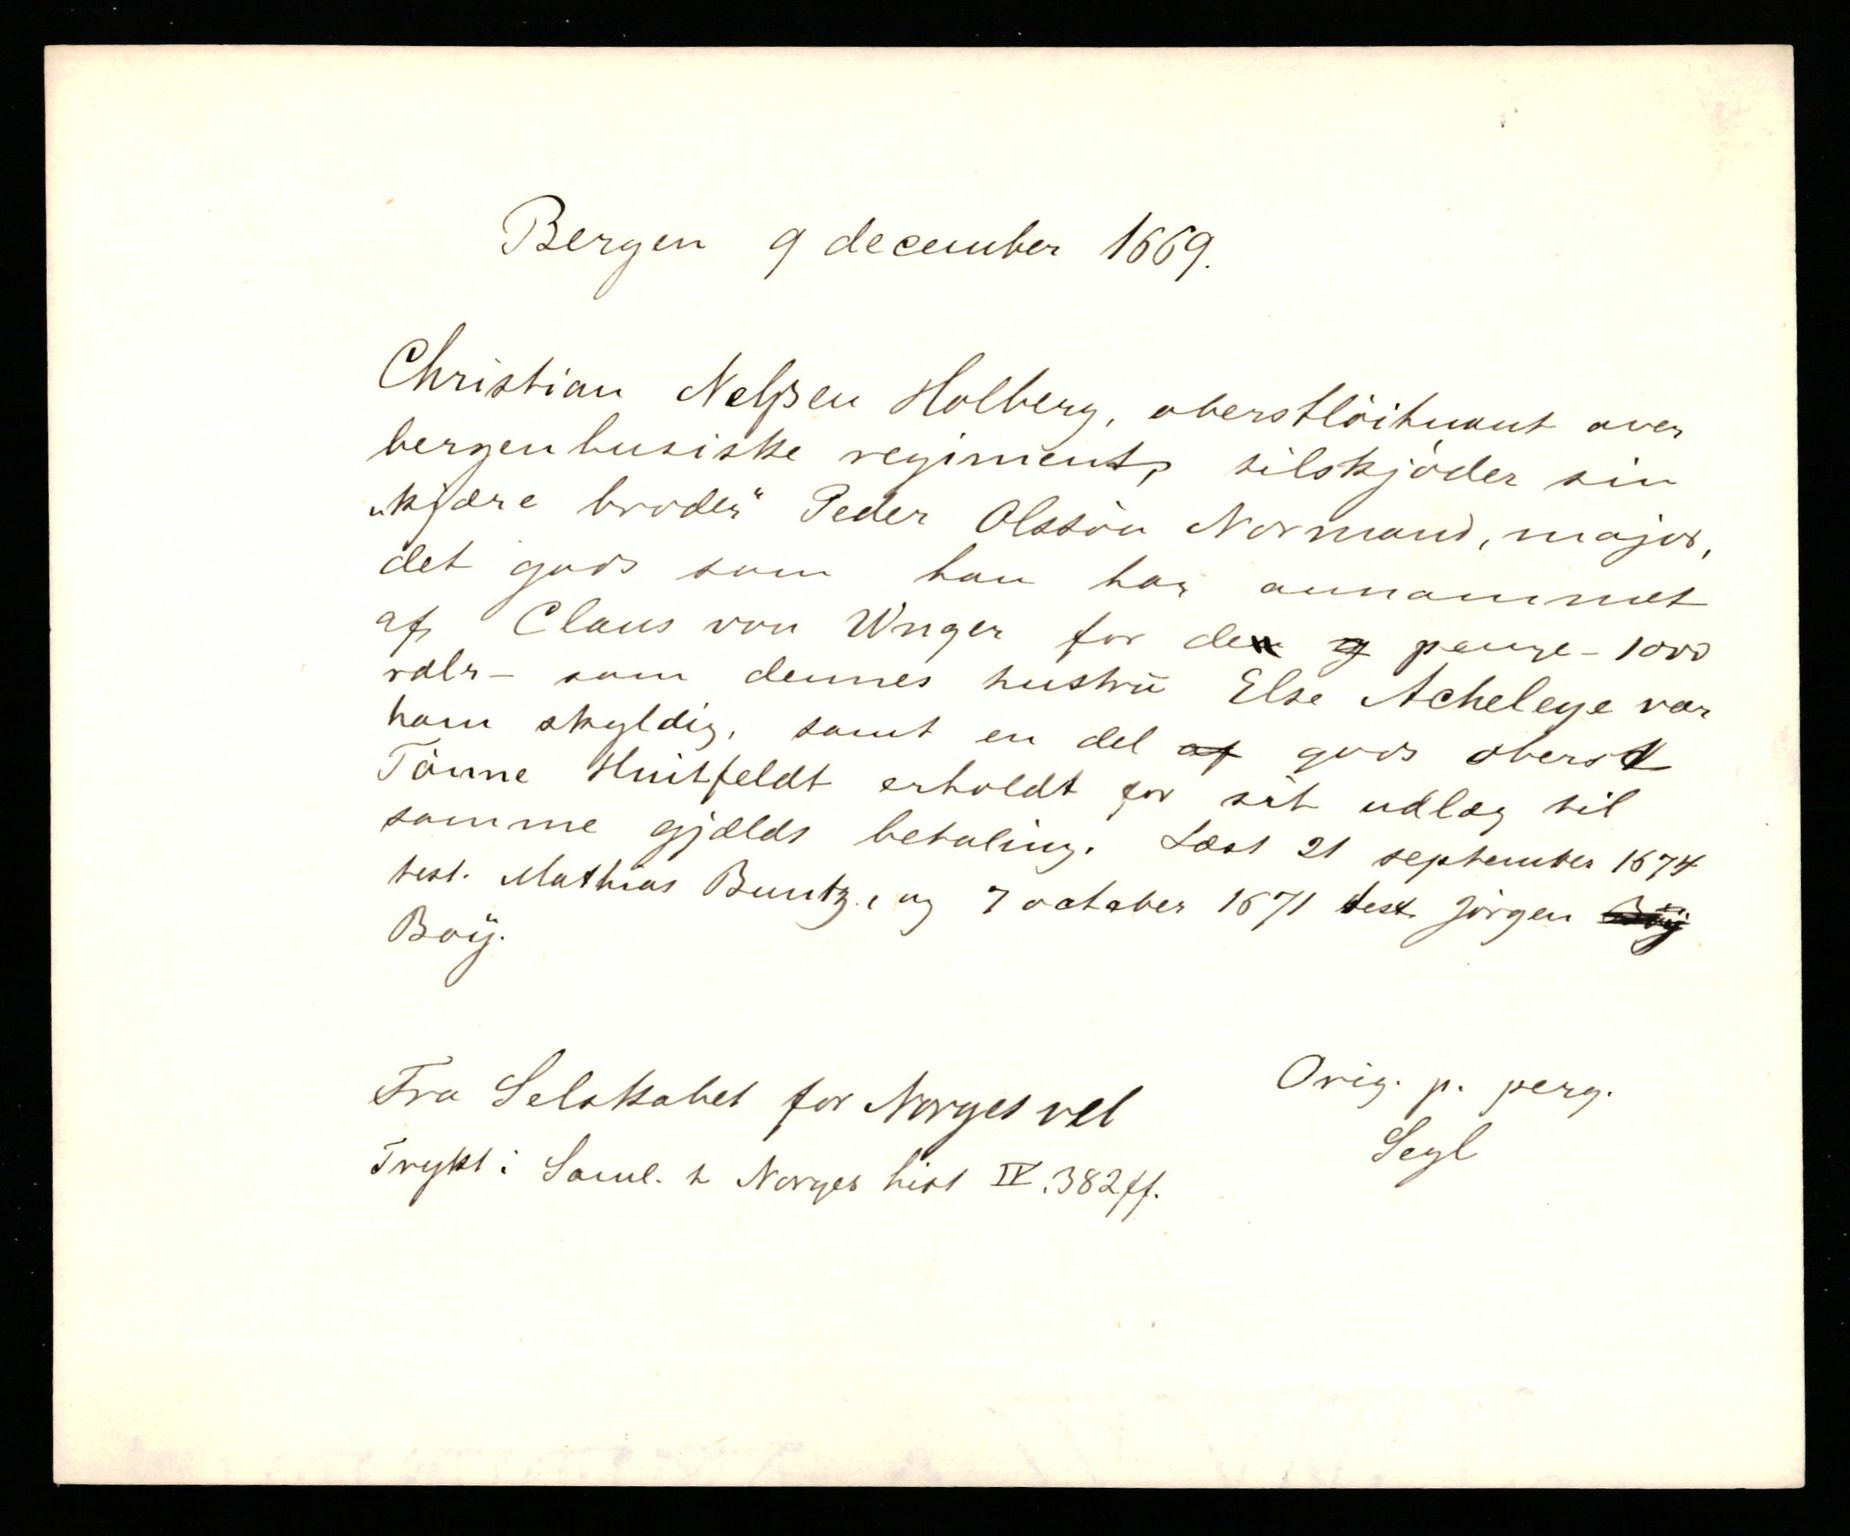 Bergen 9 december 1669.
Christian Nelßen Holberg, oberstlöitnant over
bergenhusiske regiment, tilskjöder sin
„kjære broder“ Peder Olssön Normand, major,
det gods som han har annammet
af Claus von Wnger for de penge - 1000
rdlr - som dennes hustru Else Acheleye var
ham skyldig, samt en del gods oberst
Tönne Huitfeldt erholdt for sit udlæg til
samme gjælds betaling. Læst 21 september 1674
test. Mathias Buntz., og 7 october 1671 test. Jörgen
Boÿ.
Fra Selskabet for Norges vel
Orig. p. perg.
Segl
Trykt i Saml. t Norges hist IV. 382 ff.